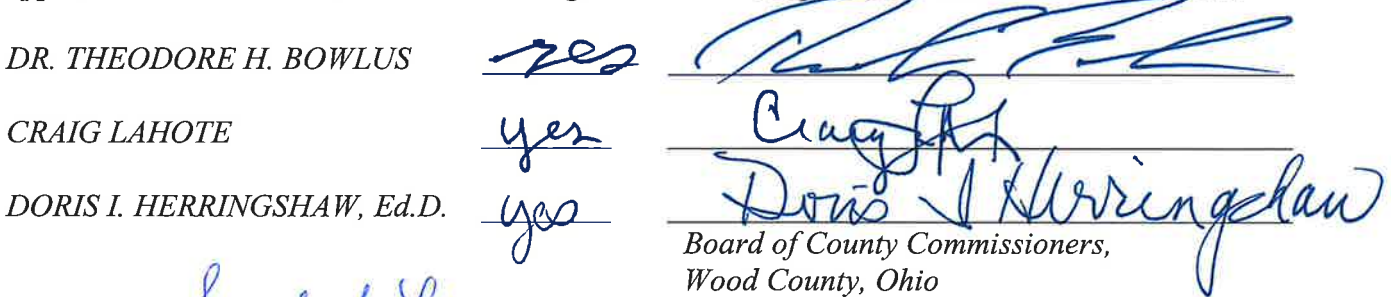 DR. THEODORE H. BOWLUS yes
CRAIG LAHOTE yes Craig
DORIS I. HERRINGSHAW, Ed.D. yes Doris I Herringshaw
Board of County Commissioners,
Wood County, Ohio